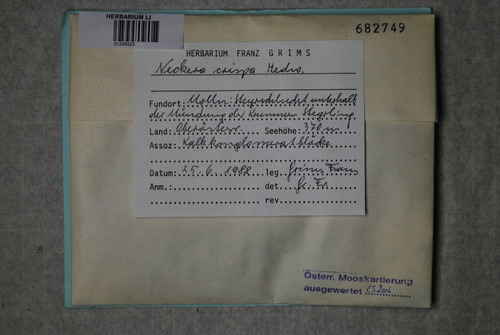 HERBARIUM LI
682749
HERBARIUM FRANZ GRIMS
Neckera crispa Hedw.
Fundort: Molln: Steyrschlucht unterhalb
der Mündung der Krummen Steyrling
Land: Oberösterr. Seehöhe: 370 m
Assoz: Kalkkonglomeratblöcke
Datum: 25.6.1988 leg. Grims Franz
Anm.: det Gr. Fr.
rev
Österr. Mooskartierung
ausgewertet